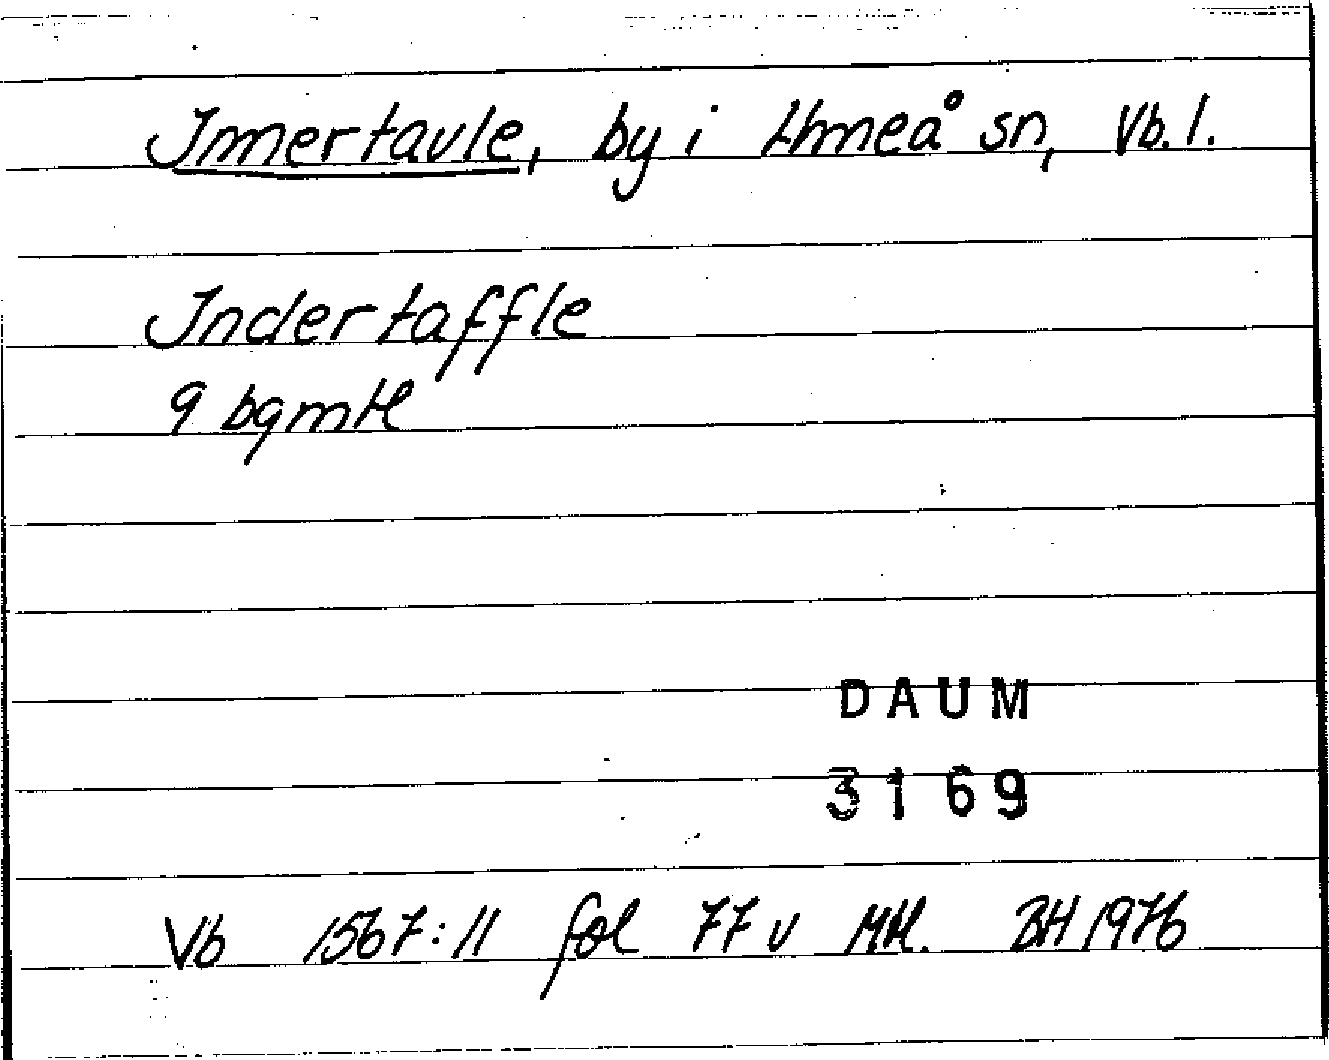 Innertavle, by i Umeå sn, Vb. l.
Indertaffle
9 bgmtl
DAUM
3169
Vb 1567:11 fol 77 v Mtl. BH 1976